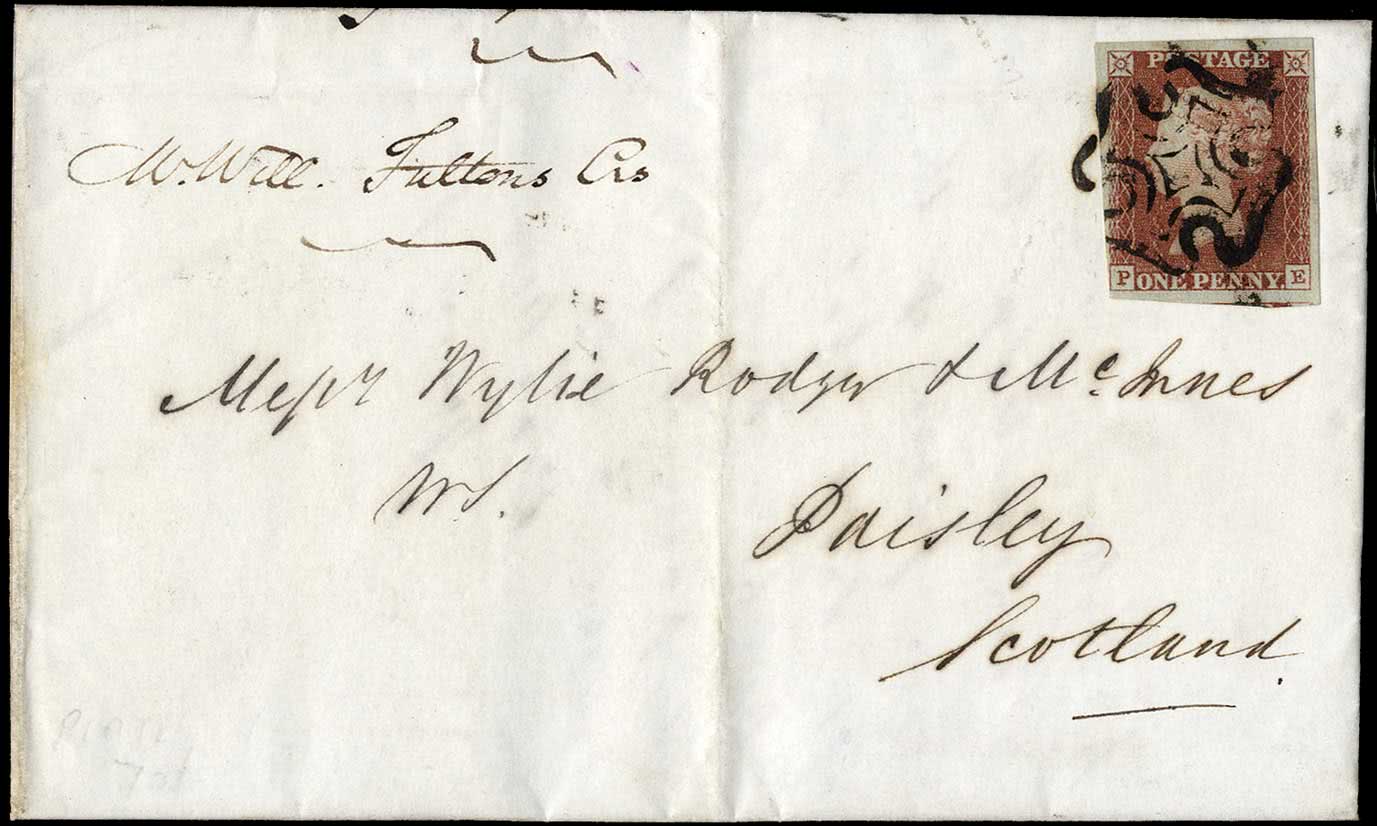 POSTAGE
P ONE PENNY. E
Mr. Will. Fultons Crs
Messrs Wylie Rodger & Mc. Innes
WS.
Paisley
Scotland.